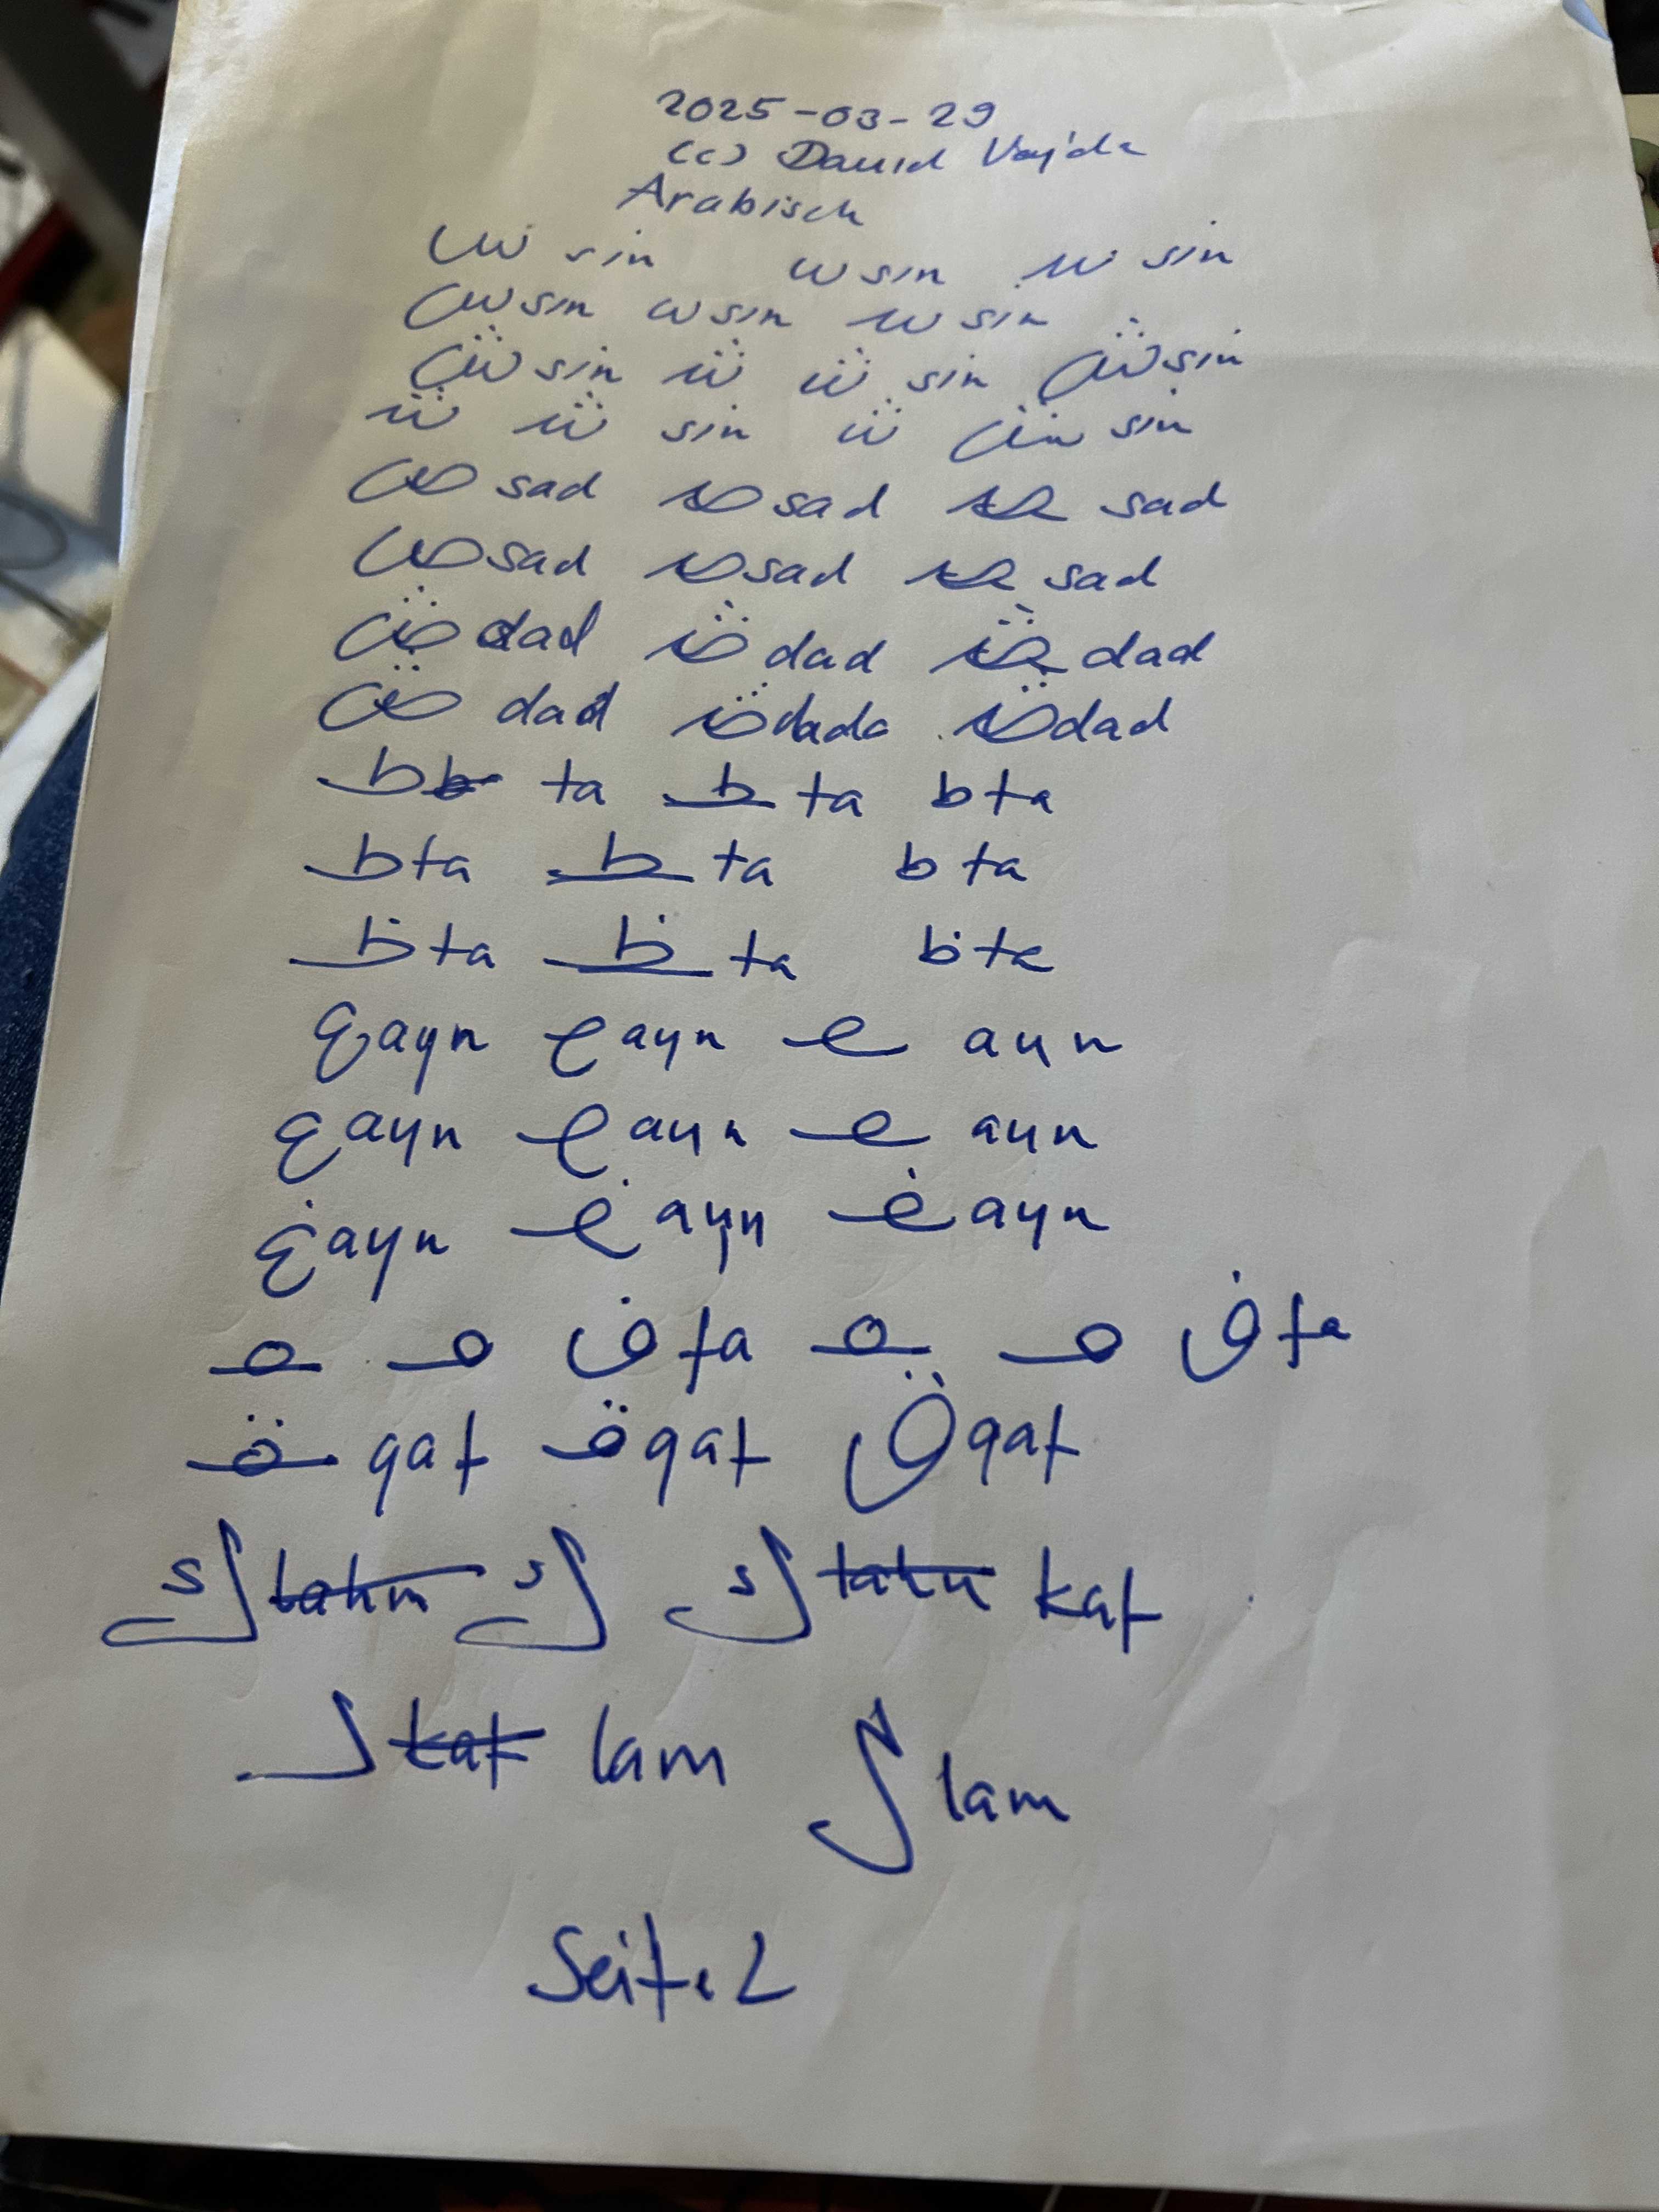 2025-03-29
(c) David Vajda
Arabisch
س sin سـ sin ـسـ sin
س sin سـ sin ـسـ sin
ش sin ـشـ شـ sin ش sin
ـشـ ـشـ sin شـ ش sin
ص sad ـص sad ـصـ sad
ص sad ـص sad ـصـ sad
ض dad ـض dad ـضـ dad
ض dad ـض dada ـض dad
ta ـطـ ta ط ta
ط ta ـطـ ta ط ta
ظ ta ـظـ ta ظ ta
ع ayn ـع ayn ـعـ ayn
ع ayn ـع ayn ـعـ ayn
غ ayn ـغ ayn ـغـ ayn
ف fa ف fa
ـقـ qaf ـق qaf ق qaf
ك ك ك kaf
لـ lam ل lam
Seite 2